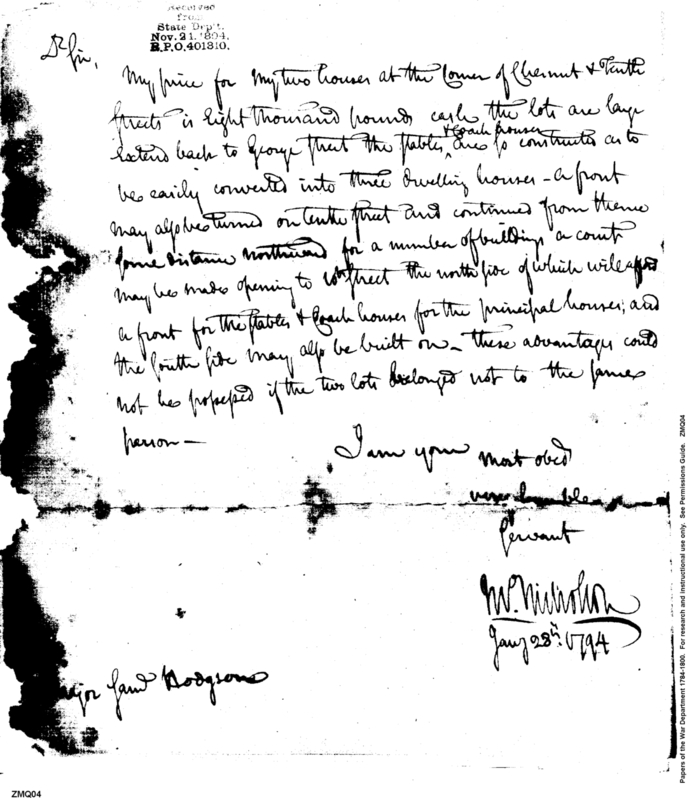 Received
from
State Dep't.
Nov. 21. 1894.
R.P.O. 401310.
Dr Sir,
My price for my two houses at the Corner of Chesnut & Tenth
Streets is Eight thousand pounds cash the lots are large
& Coach houses
extend back to George Street the stables are so constructed as to
be easily converted into three dwelling houses - a front
may also be turned on tenth street and continued from thence
some distance northward for a number of buildings a court
may be made opening to 10th Street the north side of which will
a front for the stables & Coach houses for the principal houses; and
the South side may also be built on - these advantages could
not be possessed if the two lots belonged not to the same
person -
I am your most obed
very humble
Servant
Nicholson
Jany 28th 1794
Major Saml Hodgson
ZMQ04
Papers of the War Department 1784-1800. For research and instructional use only. See Permissions Guide. ZMQ04